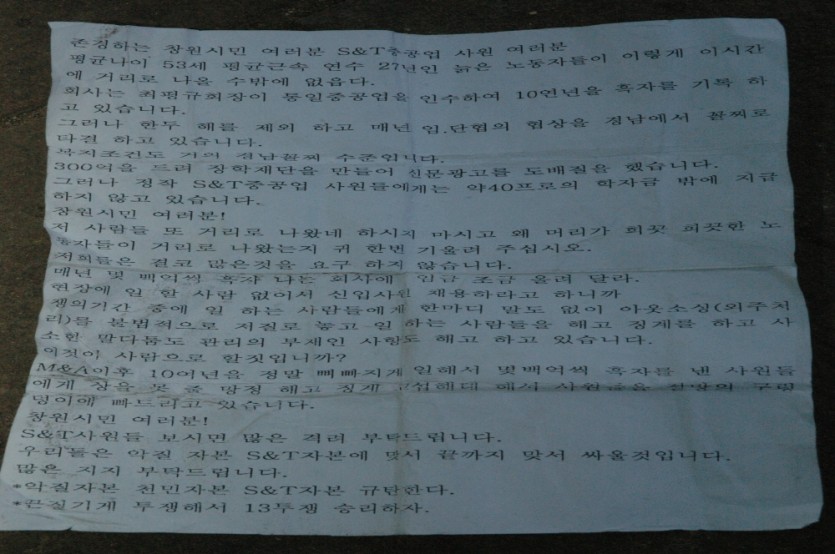 존경하는 창원시민 여러분 S&T중공업 사원 여러분
평균나이 53세 평균근속 연수 27년인 늙은 노동자들이 이렇게 이시간
에 거리로 나올 수밖에 없읍다.
회사는 최평규회장이 통일중공업을 인수하여 10연년을 흑자를 기록 하
고 있습니다.
그러나 한두 해를 제외 하고 매년 임.단협의 협상을 경남에서 꼴찌로
타결 하고 있습니다.
복지조건도 거의 경남꼴찌 수준입니다.
300억을 드려 장학재단을 만들어 신문광고를 도배질을 했습니다.
그러나 정작 S&T중공업 사원들에게는 약40프로의 학자금 밖에 지급
하지 않고 있습니다.
창원시민 여러분!
저 사람들 또 거리로 나왔네 하시지 마시고 왜 머리가 희끗 희끗한 노
동자들이 거리로 나왔는지 귀 한번 기울려 주십시오.
저희들은 결코 많은것을 요구 하지 않습니다.
매년 몇 백억씩 흑자 나는 회사에 임금 조금 올려 달라.
현장에 일 할 사람 없어서 신입사원 채용하라고 하니까
쟁의기간 중에 일 하는 사람들에게 한마디 말도 없이 아웃소싱(외주처
리)를 불법적으로 저질로 놓고 일 하는 사람들을 해고 징계를 하고 사
소한 말다툼도 관리의 부재인 사항도 해고 하고 있습니다.
이것이 사람으로 할짓입니까?
M&A이후 10여년을 정말 뼈빠지게 일해서 몇백억씩 흑자를 낸 사원들
에게 상을 못 줄 망정 해고 징계 해서 사원들을 구렁
덩이에 빠드리고 있습니다.
창원시민 여러분!
S&T사원들 보시면 많은 격려 부탁드립니다.
우리들은 악질 자본 S&T자본에 맞서 끝까지 맞서 싸울것입니다.
많은 지지 부탁드립니다.
*악질자본 천민자본 S&T자본 규탄한다.
*끈질기게 투쟁해서 13투쟁 승리하자.